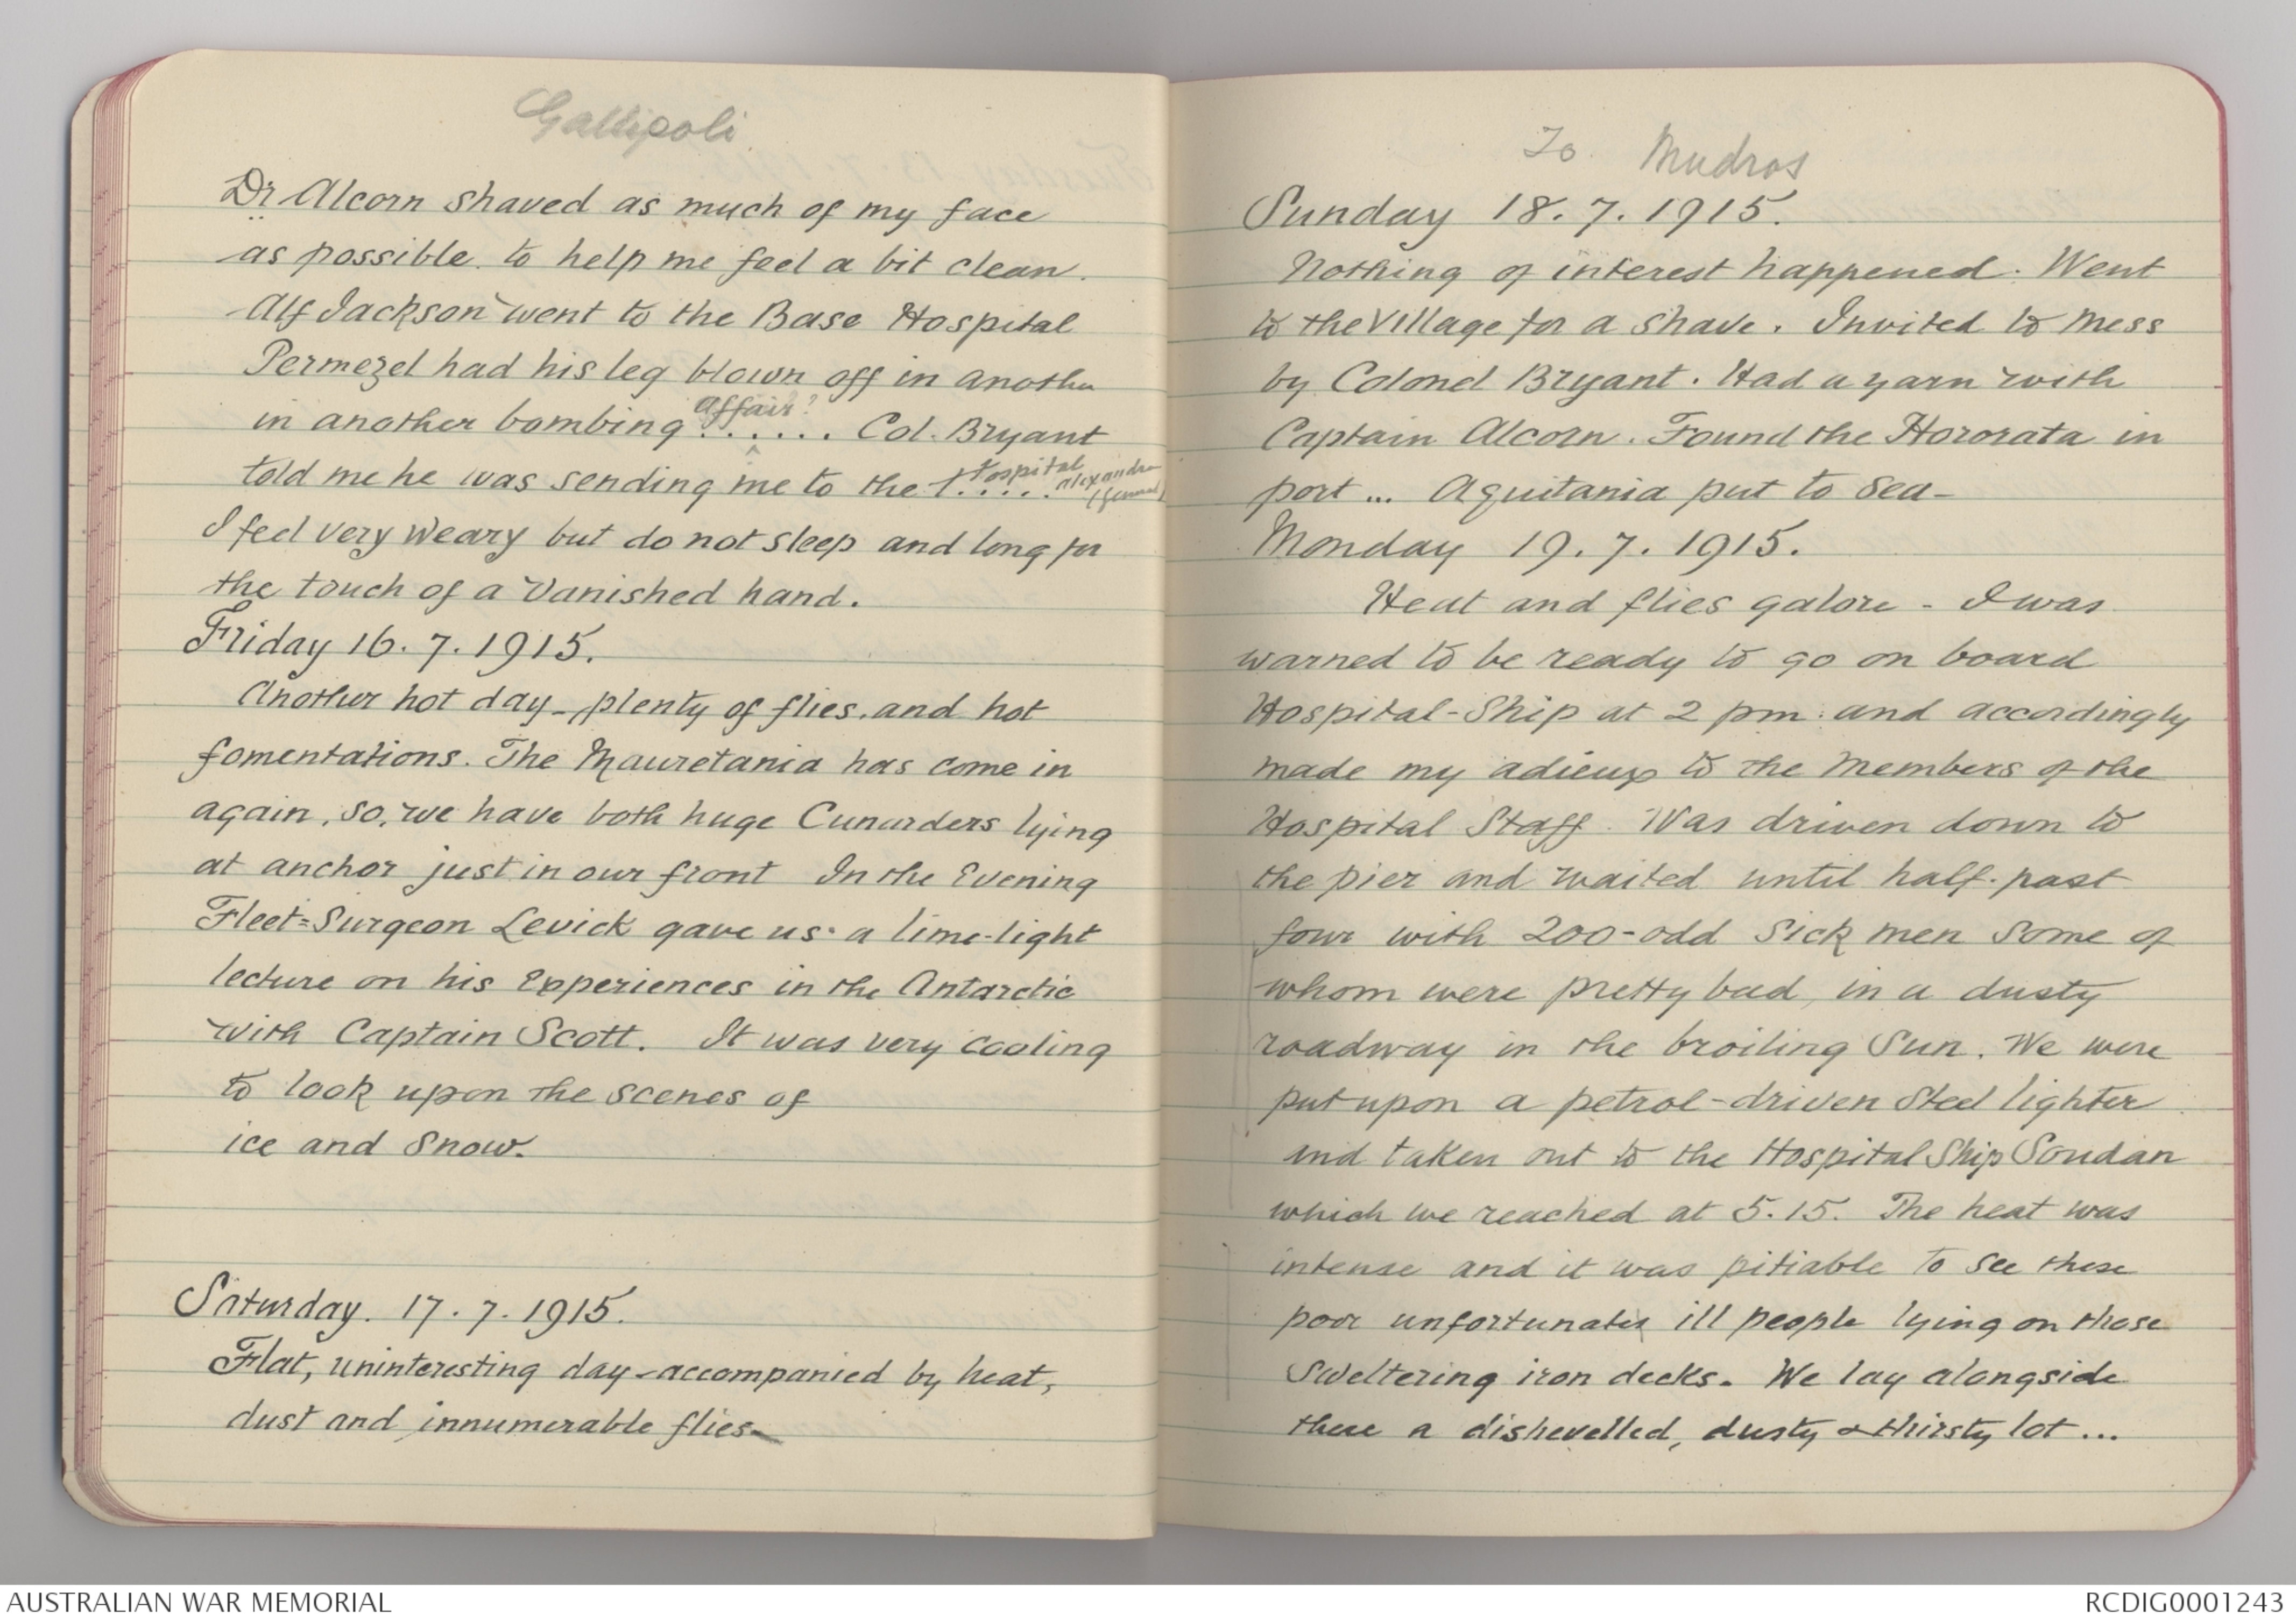 Gallipoli
Dr Alcorn shaved as much of my face
as possible. to help me feel a bit clean.
Alf Jackson went to the Base Hospital
Permezel had his leg blown off in another
in another bombing affair? ...... Col. Bryant
told me he was sending me to the ..... Hospital
I feel very weary but do not sleep and long for
the touch of a vanished hand.
Friday 16.7.1915.
Another hot day - plenty of flies. and hot
fomentations. The Mauretania has come in
again, so, we have both huge Cunarders lying
at anchor just in our front In the Evening
Fleet=Surgeon Levick gave us a lime-light
lecture on his Experiences in the Antarctic
with Captain Scott. It was very cooling
to look upon the scenes of
ice and snow.
Saturday. 17.7.1915.
Flat, uninteresting day - accompanied by heat,
dust and innumerable flies-
To Mudros
Sunday 18.7.1915.
Nothing of interest happened. Went
to the Village for a shave. Invited to mess
by Colonel Bryant. Had a yarn with
Captain Alcorn. Found the Hororata in
port ... Aquitania put to sea-
Monday 19.7.1915.
Heat and flies galore - I was
warned to be ready to go on board
Hospital-Ship at 2 pm. and accordingly
made my adieux to the Members of the
Hospital Staff. Was driven down to
the pier and waited until half-past
four with 200-odd sick men some of
whom were pretty bad, in a dusty
roadway in the broiling sun. We were
put upon a petrol-driven steel lighter
and taken out to the Hospital Ship Soudan
which we reached at 5.15. The heat was
intense and it was pitiable to see these
poor unfortunates ill people lying on those
sweltering iron decks. We lay alongside
there a dishevelled, dusty & thirsty lot ...
AUSTRALIAN WAR MEMORIAL
RCDIG0001243